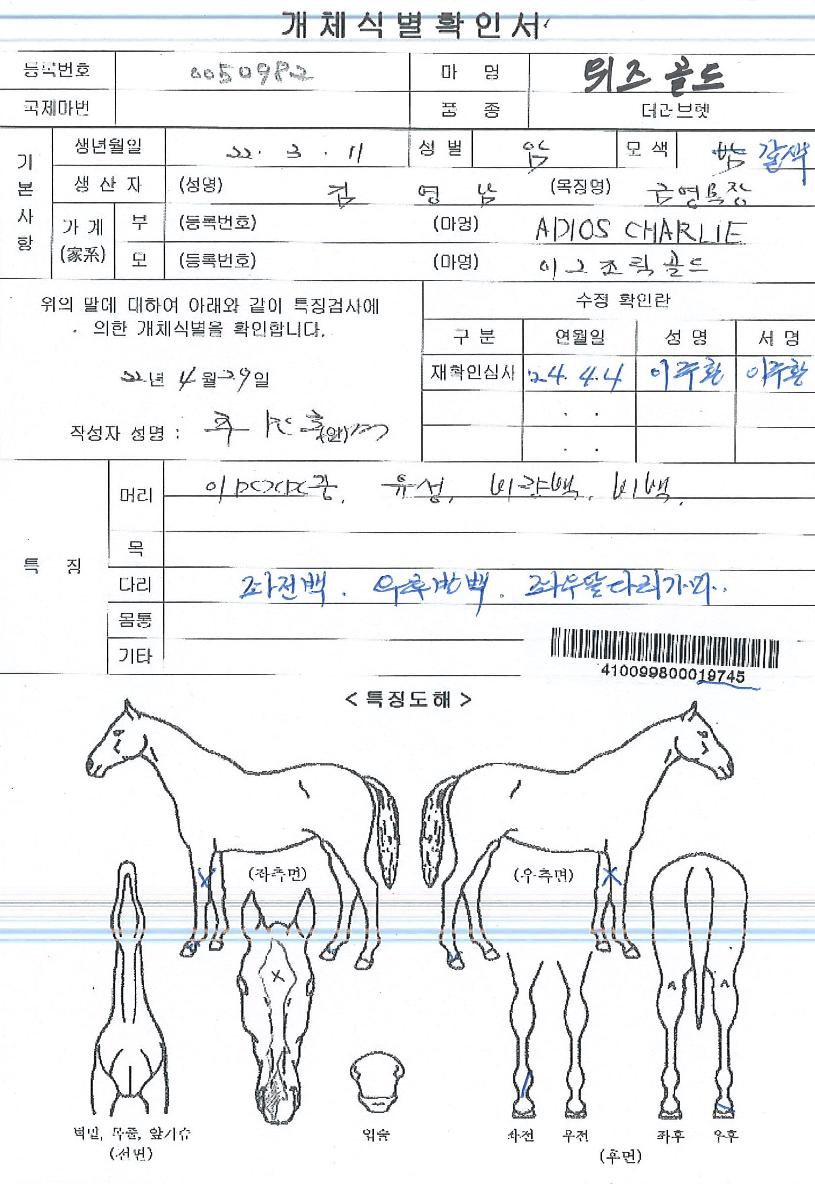 개체식별확인서
등록번호 0050982 마 명 위즈골드
국제마번 품 종 더러브렛
기본사항
생년월일 22. 3. 11 성별 암 모색 밤 갈색
생산자 (성명) 김영남 (목장명) 금영목장
가계(家系) 부 (등록번호) (마명) ADIOS CHARLIE
모 (등록번호) (마명) 이그조틱골드
위의 말에 대하여 아래와 같이 특징검사에
의한 개체식별을 확인합니다.
22년 4월 29일
작성자 성명 : (인)
수정 확인란
구 분 연월일 성 명 서 명
재확인심사 '24. 4. 4 이주환 이주환
특 징
머리 유성, 비량백, 비백.
목
다리 좌전백. 우후반백. 좌우앞다리가마.
몸통
기타
410099800019745
<특징도해>
(좌측면) (우측면)
턱밑, 목줄, 앞가슴
(전면)
입술
좌전 우전 좌후 우후
(후면)